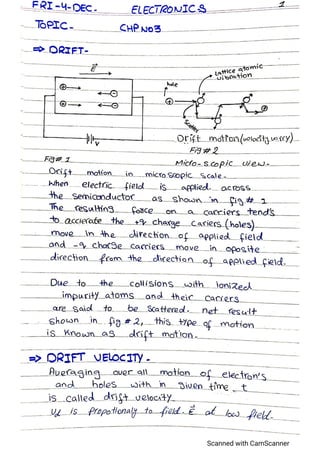 FRI-4-DEC. ELECTRONICS 1
TOPIC- CHP NO3
=> DRIFT-
E
hole
Lattice atomic
vibration
Scatter
V
Drift motion (velocity vary)
Fig # 2
Fig # 1 Micro-scopic view.
Drift motion in microscopic scale.
when electric field is applied across
the semiconductor as shown in fig # 1
The resulting force on a carriers tends
to accierate the +q charge cariers (holes)
move in the direction of applied field
and -q charge carriers move in oposite
direction from the direction of applied field.
Due to the collisions with ionized
impurity atoms and their carriers
are said to be scattered. net result
shown in fig # 2, this type of motion
is known as drift motion.
=> DRIFT VELOCITY-
Averaging over all motion of electron's
and holes with in given time t
is called drift velocity
Vd is propotionaly to field. E at low field.
Scanned with CamScanner